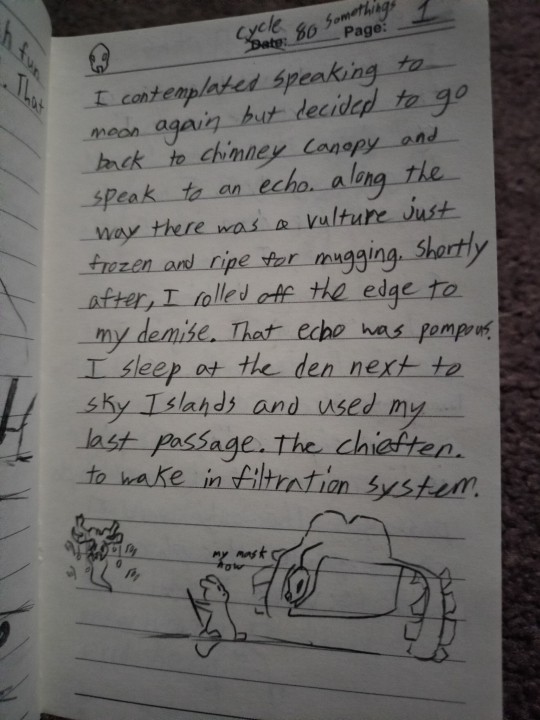 h fun
. That
Cycle 80 Somethings
Date: Page: 1
I contemplated speaking to
moon again but decided to go
back to chimney canopy and
speak to an echo. along the
way there was a vulture just
frozen and ripe for mugging. Shortly
after, I rolled off the edge to
my demise. That echo was pompous.
I sleep at the den next to
sky Islands and used my
last passage. The chieften.
to wake in filtration system.
my mask
now